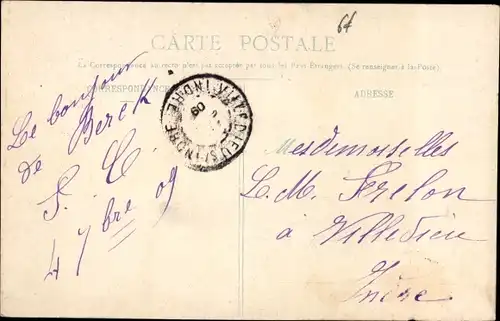 64
CARTE POSTALE
La Correspondance au recto n'est pas acceptée par tous les Pays Étrangers. (Se renseigner à la Poste)
CORRESPONDANCE
ADRESSE
Le bonjour
de Berck
S. C
4 7bre 09
VILLEDIEU S/ INDRE
INDRE
09
Mesdemoiselles
L. M. Frelon
à Villedieu
Indre